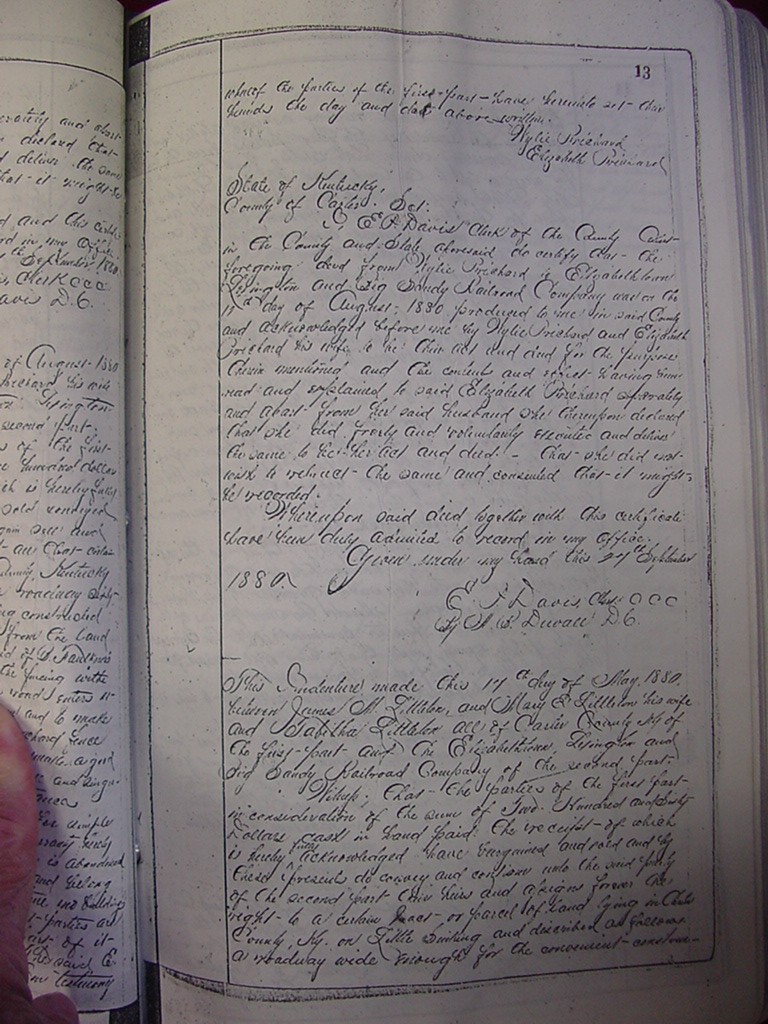 13
erately and apart
declared that
deliver the same
that it might be
d and this certifi
rd in my office
th September 1880
Clerk C C C
avis D.C.
of August 1880
Prichard his wife
Lexington
second part.
of the first
hundred dollars
ch is hereby fully
sold conveyed
sell and
all that certain
County, Kentucky
roadway sixty
ing constructed
from the land
d of
the fencing with
road enters it
and to make
chard fence
make a good
and single
simple
is abandoned
and belong
no building
parties are
part of it
testimony
whereof the parties of the first part have hereunto set their
hands the day and date above written.
Wylie Prichard
Elizabeth Prichard
State of Kentucky,
County of Carter. Sct.
I, E. P. Davis Clerk of the County Court
in the County and State aforesaid do certify that the
foregoing deed from Wylie Prichard to Elizabethtown
Lexington and Big Sandy Railroad Company was on the
11th day of August, 1880 produced to me in said County
and acknowledged before me by Wylie Prichard and Elizabeth
Prichard his wife to be their act and deed for the purposes
therein mentioned and the contents and effect having been
read and explained to said Elizabeth Prichard separately
and apart from her said husband she thereupon declared
that she did freely and voluntarily execute and deliver
the same to be her act and deed. - that she did not
wish to retract the same and consented that it might
be recorded.
Whereupon said deed together with this certificate
have been duly admitted to record in my office.
Given under my hand this 27th September
1880.
E P Davis, Clerk C C C
By A. B. Duvall D.C.
This Indenture made this 17th day of May, 1880
between James M. Littleton, and Mary E. Littleton his wife
and Tabitha Littleton all of Carter County Ky of
the first part and The Elizabethtown, Lexington and
Big Sandy Railroad Company of the second part.
Witness; That the parties of the first part
in consideration of the sum of Two Hundred and sixty
Dollars cash in hand paid the receipt of which
is hereby fully acknowledged have bargained and sold and by
these presents do convey and confirm unto the said party
of the second part their heirs and assigns forever the
right to a certain tract or parcel of land lying in Carter
County, Ky. on Little Sinking and described as follows
a roadway wide enough for the convenient construc-